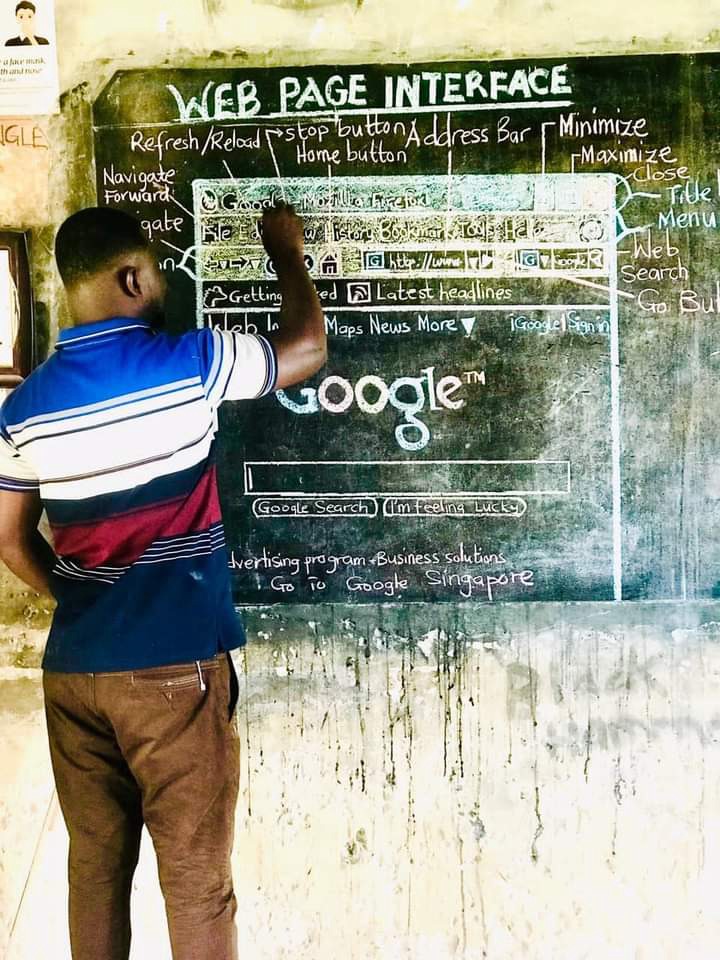 a face mask,
th and nose
NGLE
WEB PAGE INTERFACE
Refresh/Reload
stop button
Address Bar
Minimize
Home button
Maximize
Navigate
Forward
Close
Title
Menu
gate
Mozilla Firefox
File
History Bookmark Tools Help
http://www
Google
Web
Search
Getting
Latest headlines
Go Bu
Web
Maps News More
iGoogle | Sign in
Google™
Google Search
I'm Feeling Lucky
dvertising program Business solutions
Go To Google Singapore
Black